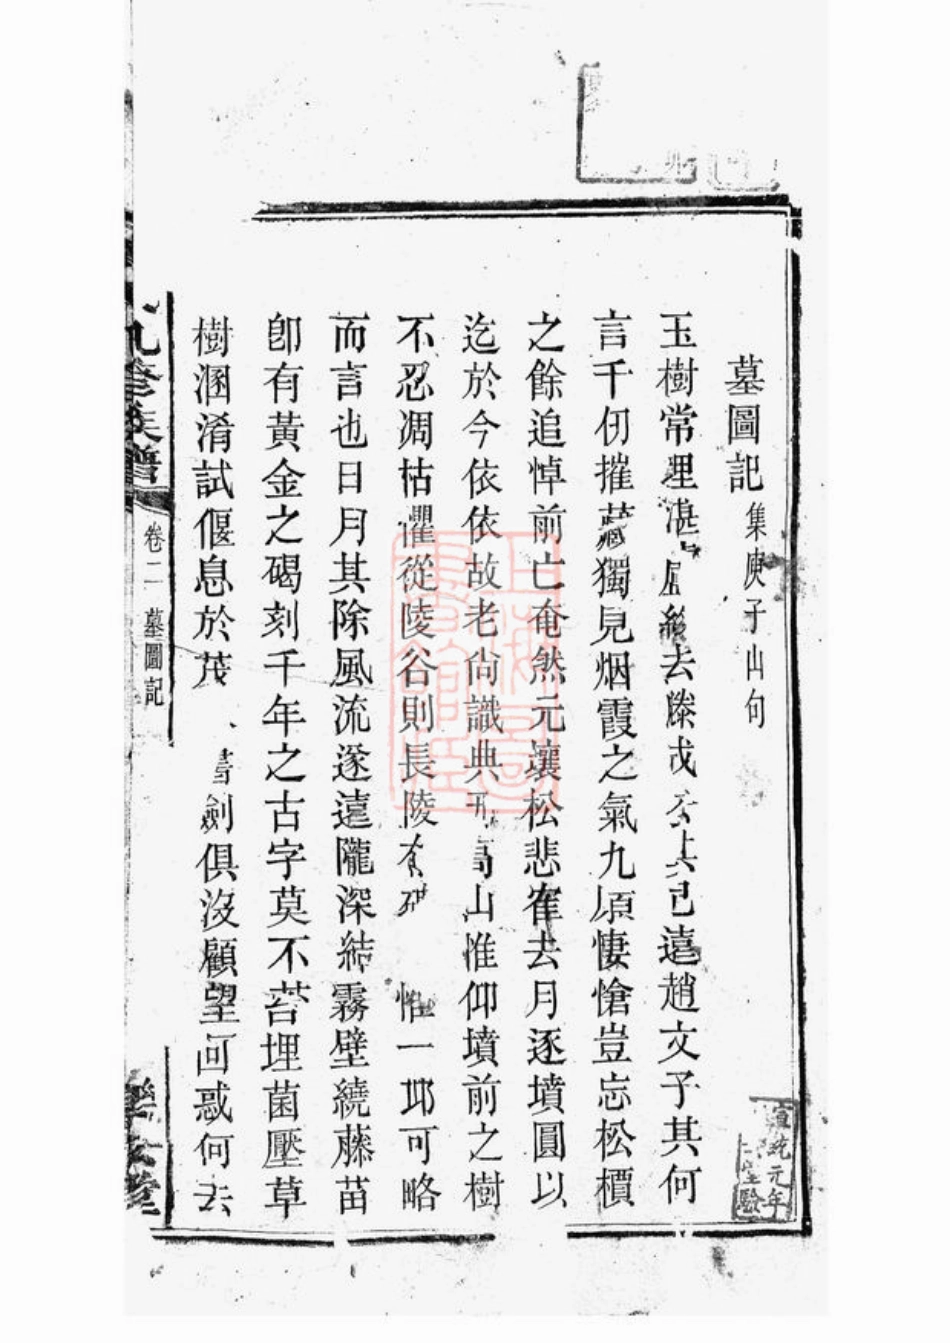 墓圖記集庾子山句
玉樹常埋湛去滕戍其已遠趙文子其何
言千仞摧藏獨見烟霞之氣九原悽愴豈忘松檟
之餘追悼前亡奄然元壤松悲寉去月逐墳圓以
迄於今依依故老尙識典高山惟仰墳前之樹
不忍凋枯懼從陵谷則長陵惟一邙可略
而言也日月其除風流遂遠隴深結霧壁繞藤苗
卽有黃金之碣刻千年之古字莫不苔埋菌壓草
樹溷淆試偃息於茂書劍俱沒顧望回惑何去
九修族譜
卷二 墓圖記
宣統元年